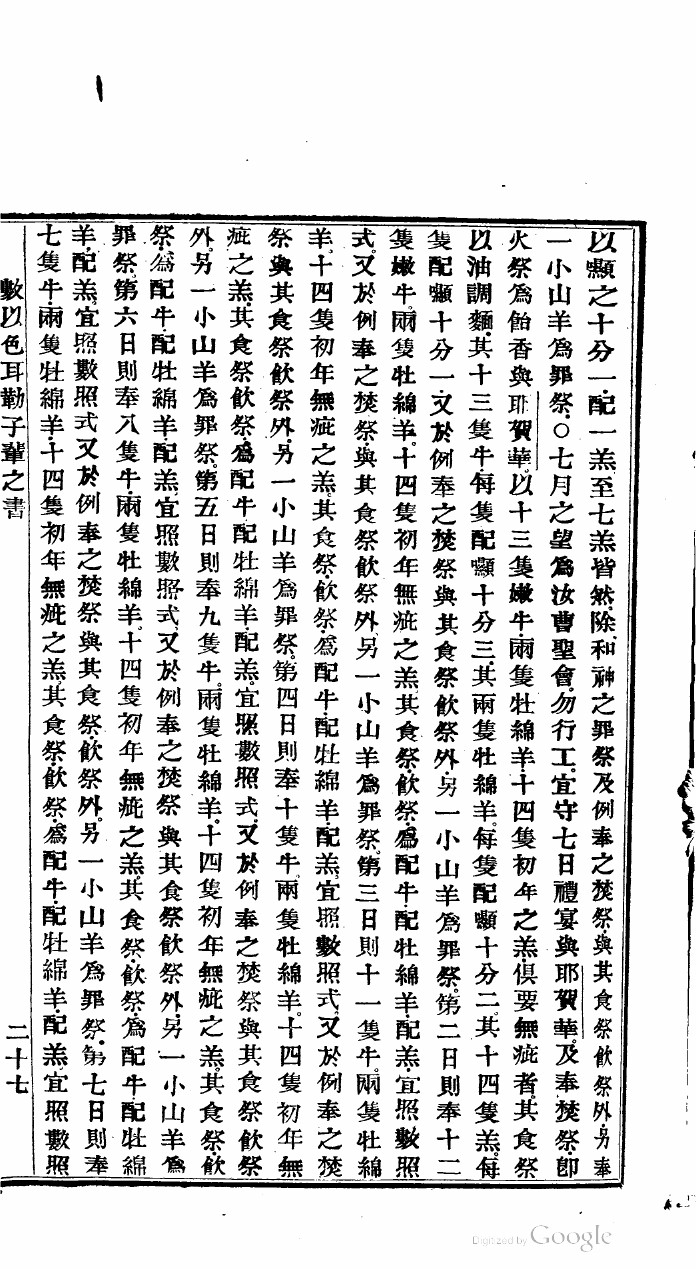 以嚬之十分一、配一羔、至七羔皆然、除和神之罪祭及例奉之焚祭、與其食祭飲祭外另奉
一小山羊爲罪祭。○七月之望爲汝曹聖會、勿行工、宜守七日禮宴與耶賀華、及奉焚祭、卽
火祭爲飴香與耶賀華、以十三隻嫩牛、兩隻牡綿羊、十四隻初年之羔、俱要無疵者、其食祭
以油調麵、其十三隻牛、每隻配嚬十分三、其兩隻牡綿羊、每隻配嚬十分二、其十四隻羔、每
隻配嚬十分一、又於例奉之焚祭與其食祭飲祭外、另一小山羊爲罪祭。第二日則奉十二
隻嫩牛、兩隻牡綿羊、十四隻初年無疵之羔、其食祭、飲祭、爲配牛配牡綿羊配羔、宜照數照
式、又於例奉之焚祭、與其食祭飲祭外、另一小山羊爲罪祭。第三日則十一隻牛、兩隻牡綿
羊、十四隻初年無疵之羔、其食祭、飲祭、爲配牛配牡綿羊配羔、宜照數照式、又於例奉之焚
祭與其食祭飲祭外、另一小山羊爲罪祭。第四日則奉十隻牛、兩隻牡綿羊、十四隻初年無
疵之羔、其食祭飲祭、爲配牛配牡綿羊、配羔、宜照數照式、又於例奉之焚祭與其食祭飲祭
外、另一小山羊爲罪祭。第五日則奉九隻牛、兩隻牡綿羊、十四隻初年無疵之羔、其食祭、飲
祭、爲配牛、配牡綿羊配羔、宜照數照式、又於例奉之焚祭與其食祭飲祭外、另一小山羊爲
罪祭。第六日則奉八隻牛、兩隻牡綿羊、十四隻初年無疵之羔、其食祭、飲祭、爲配牛、配牡綿
羊、配羔、宜照數照式、又於例奉之焚祭與其食祭、飲祭外、另一小山羊爲罪祭。第七日則奉
七隻牛、兩隻牡綿羊、十四隻初年無疵之羔、其食祭、飲祭、爲配牛、配牡綿羊、配羔、宜照數照
數以色耳勒子輩之書
二十七
Digitized by Google